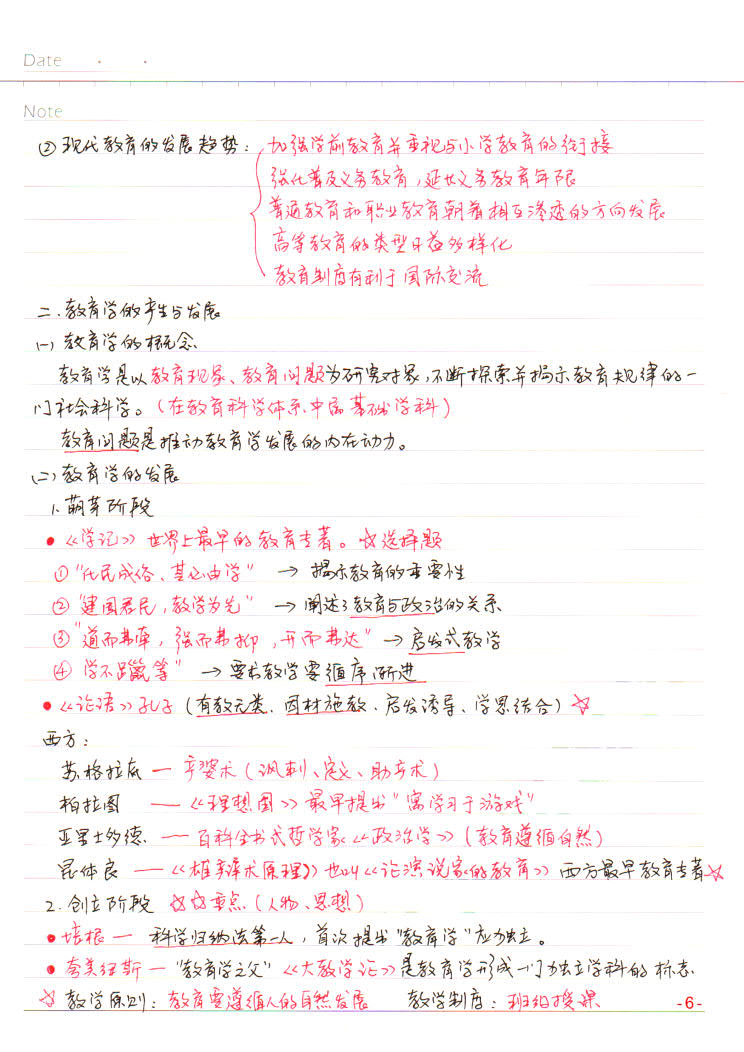 Date
Note
② 现代教育的发展趋势：加强学前教育并重视与小学教育的衔接
强化普及义务教育，延长义务教育年限
普通教育和职业教育朝着相互渗透的方向发展
高等教育的类型日益多样化
教育制度有利于国际交流
二.教育学的产生与发展
(一) 教育学的概念
教育学是以教育现象、教育问题为研究对象，不断探索并揭示教育规律的一
门社会科学。(在教育科学体系中属基础学科)
教育问题是推动教育学发展的内在动力。
(二) 教育学的发展
1.萌芽阶段
• 《学记》世界上最早的教育专著。☆选择题
① "化民成俗、其必由学" → 揭示教育的重要性
② "建国君民，教学为先" → 阐述了教育与政治的关系
③ "道而弗牵，强而弗抑，开而弗达" → 启发式教学
④ 学不躐等" → 要求教学要循序渐进
• 《论语》孔子 (有教无类、因材施教、启发诱导、学思结合) ☆
西方：
苏格拉底 — 产婆术 (讽刺、定义、助产术)
柏拉图 — 《理想国》最早提出"寓学习于游戏"
亚里士多德 — 百科全书式哲学家《政治学》(教育遵循自然)
昆体良 — 《雄辩术原理》也叫《论演说家的教育》西方最早教育专著☆
2.创立阶段 ☆☆重点 (人物、思想)
• 培根 — 科学归纳法第一人，首次提出"教育学"应独立。
• 夸美纽斯 — "教育学之父"《大教学论》是教育学形成一门独立学科的标志
☆ 教学原则：教育要遵循人的自然发展 教学制度：班级授课
-6-